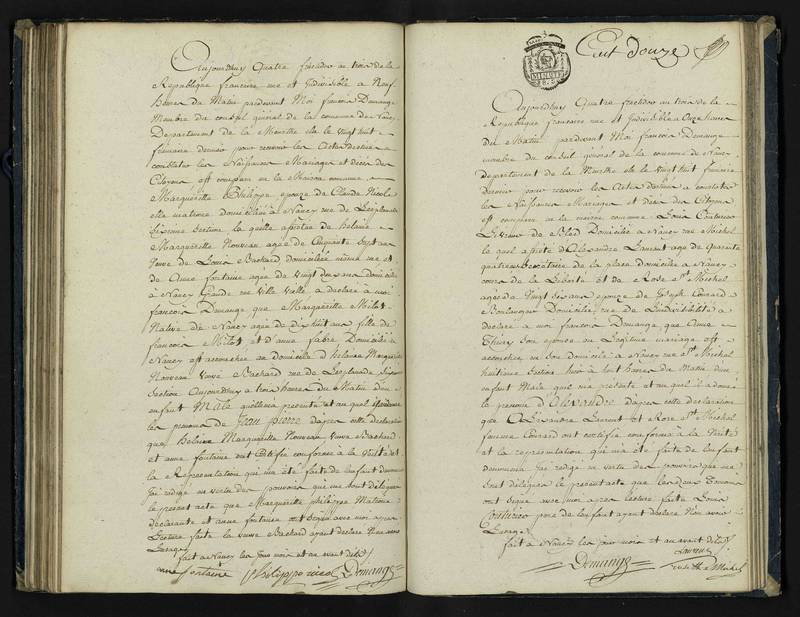 Aujourdhuy Quatre fructidor an trois de la
Republique francaise une et Indivisible a Neuf
heures du Matin pardevant Moi francois Demange
Membre du conseil general de la commune de Nancy
Departement de la Meurthe elu le vingt huit
frimaire dernier pour recevoir les Actes destines a
constater les Naissances Mariages et deces des
Citoyens, est comparu en la Maison commune,
Marguerite Philippe epouze de Claude Nicole
elle matrone domiciliée a Nancy rue de L'esplanade
Sixieme Section la quelle assistée de helaine
Marguerite Nouveau agee de Cinquante Sept ans
Veuve de Louis Bachard domiciliée même rue et
de Anne fontaine agée de vingt deux ans domiciliée
à Nancy Grande rue Ville vielle, a declaré a moi
francois Demange que Marguerite Milet
Native de Nancy agée de dix huit ans fille de
francois Milet et d'anne fabre Domiciliés a
Nancy est accouchée au Domicile d'helaine Marguerite
Nouveau veuve Bachard rue de L'esplanade Sixieme
Section Aujourdhuy a trois heures du Matin d'un
enfant Male quelle m'a presenté et au quel
les prenoms de Jean pierre dapres cette declaration
que helaine Marguerite Nouveau veuve Bachard
et anne fontaine ont Certifié conforme a la Verité et
la Representation qui m'a été faite de lenfant denommé
jai rédigé en vertu des pouvoirs qui me sont délégués
le present acte que Marguerite philippe Matrone
declarante et anne fontaine ont signé avec moi apres
Lecture faite la veuve Bachard ayant declaré Non avoir
Lusage
fait a Nancy les jour mois et an avant dits
anne fontaine philippe nicol Demange
Cent douze
Aujourdhuy Quatre fructidor an trois de la
Republique francaise une et Indivisible a Onze heures
du Matin pardevant Moi francois Demange
membre du conseil général de la commune de Nancy
departement de la Meurthe elu le vingt huit frimaire
Dernier pour recevoir les Actes destines a constater
les Naissances Mariages et deces des Citoyens
est comparu en la maison commune Louis Couturier
de Bled Domicilié a Nancy rue St Michel
le quel assisté d'Alexandre Laurent agé de Quarante
quatre ans de la place domicilié a Nancy
cours de la Liberté et de Rose St Michel
agée de Vingt six ans epouze de Joseph Conrard
Boulanger Domiciliée rue de l'indivisibilité a
declaré a moi francois Demange, que Anne
Thiery son epouse en Legitime mariage est
accouchée en son Domicile a Nancy rue St Michel
huitieme Section hier à huit heures du Matin d'un
enfant Male qui m'a presenté et au quel il a donné
le prenom d'Alexandre dapres cette declaration
que Alexandre Laurent et Rose St Michel
femme Conrard ont certifié conforme à la Verité
et la représentation qui m'a été faite de lenfant
denommé jai rédigé en vertu des pouvoirs qui me
sont délégués le present acte que les deux Temoins
ont signé avec moi apres lecture faite Louis
Couturier pere de lenfant ayant declaré Non avoir
Lusage
fait a Nancy les jour mois et an avant dits
Laurent
Demange rose St Michel